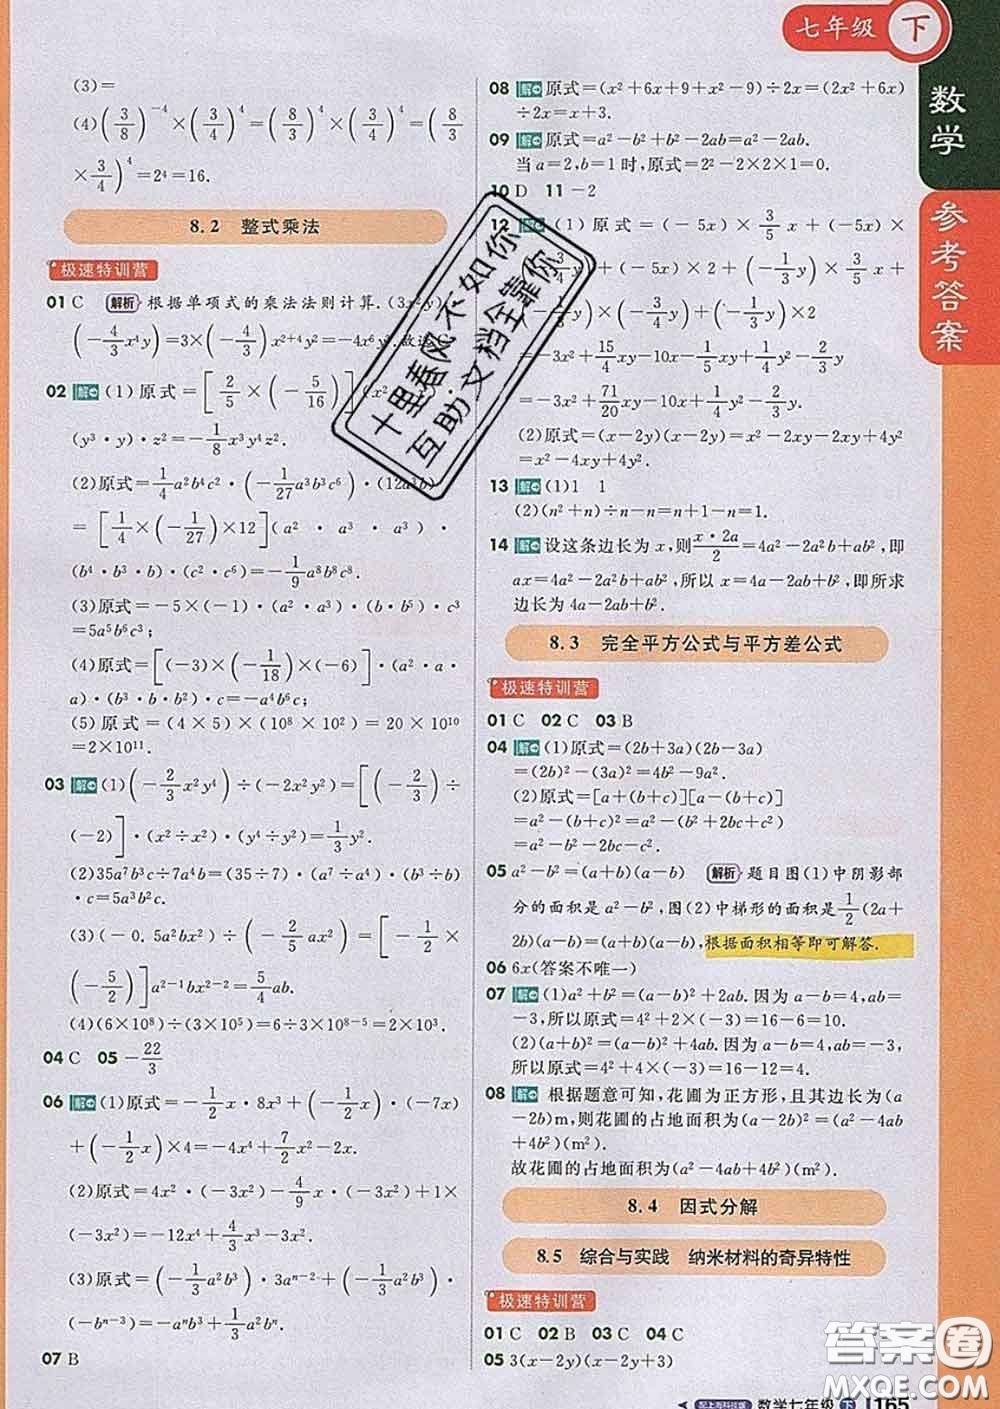 七年级 下
数学
参考答案
(3)=
(4)(3/8)^{-4}×(3/4)^4=(8/3)^4×(3/4)^4=(8/3
×3/4)^4=2^4=16.
8.2 整式乘法
极速特训营
01 C 解析 根据单项式的乘法法则计算.(3x²y)
(-4/3x⁴y)=3×(-4/3)x^{2+4}y
=-4x⁶y
02 解 (1)原式=[2/5×(-5/16)]
(y³·y)·z²=-1/8x³y⁴z².
(2)原式=1/4a²b⁴c²·(-1/27a³b³c⁶)·(12a³b)
=[1/4×(-1/27)×12](a²·a³·a³)·
(b⁴·b³·b)·(c²·c⁶)=-1/9a⁸b⁸c⁸.
(3)原式=-5×(-1)·(a²·a³)·(b·b⁵)·c³
=5a⁵b⁶c³;
(4)原式=[(-3)×(-1/18)×(-6)]·(a²·a·
a)·(b³·b³)·c=-a⁴b⁶c;
(5)原式=(4×5)×(10⁸×10²)=20×10¹⁰
=2×10¹¹.
03 解 (1)(-2/3x²y⁴)÷(-2x²y²)=[(-2/3)÷
(-2)]·(x²÷x²)·(y⁴÷y²)=1/3y².
(2)35a⁷b³c÷7a⁴b=(35÷7)·(a⁷÷a⁴)·(b³÷b)
·c=5a³b²c.
(3)(-0.5a²bx²)÷(-2/5ax²)=[(-1/2)×
(-5/2)]a^{2-1}bx^{2-2}=5/4ab.
(4)(6×10⁸)÷(3×10⁵)=(6÷3)×10^{8-5}=2×10³.
04 C 05 -22/3
06 解 (1)原式=-1/2x·8x³+(-1/2x)·(-7x)
+(-1/2x)×4=-4x⁴+7/2x²-2x.
(2)原式=4x²·(-3x²)-4/9x·(-3x²)+1×
(-3x²)=-12x⁴+4/3x³-3x².
(3)原式=(-1/3a²b³)·3a^{n-2}+(-1/3a²b³)·
(-b^{n-3})=-aⁿb³+1/3a²bⁿ.
07 B
08 解 原式=(x²+6x+9+x²-9)÷2x=(2x²+6x)
÷2x=x+3.
09 解 原式=a²-b²+b²-2ab=a²-2ab.
当a=2,b=1时,原式=2²-2×2×1=0.
10 D 11 -2
12 解 (1)原式=(-5x)×3/5x+(-5x)×
=-3x²+15/4xy-10x-
=-3x²+71/20xy-10x-
(2)原式=(x-2y)(x-2y)=x²-2xy-2xy+4y²
=x²-4xy+4y².
13 解 (1)1 1
(2)(n²+n)÷n-n=n+1-n=1.
14 解 设这条边长为x,则x·2a/2=4a²-2a²b+ab²,即
ax=4a²-2a²b+ab²,所以x=4a-2ab+b²,即所求
边长为4a-2ab+b².
8.3 完全平方公式与平方差公式
极速特训营
01 C 02 C 03 B
04 解 (1)原式=(2b+3a)(2b-3a)
=(2b)²-(3a)²=4b²-9a².
(2)原式=[a+(b+c)][a-(b+c)]
=a²-(b+c)²=a²-(b²+2bc+c²)
=a²-b²-2bc-c².
05 a²-b²=(a+b)(a-b) 解析 题目图(1)中阴影部
分的面积是a²-b²,图(2)中梯形的面积是1/2(2a+
2b)(a-b)=(a+b)(a-b),根据面积相等即可解答.
06 6x(答案不唯一)
07 解 (1)a²+b²=(a-b)²+2ab.因为a-b=4,ab=
-3,所以原式=4²+2×(-3)=16-6=10.
(2)(a+b)²=(a-b)²+4ab.因为a-b=4,ab=-3,
所以原式=4²+4×(-3)=16-12=4.
08 解 根据题意可知,花圃为正方形,且其边长为(a
-2b)m,则花圃的占地面积为(a-2b)²=(a²-4ab
+4b²)(m²).
故花圃的占地面积为(a²-4ab+4b²)(m²).
8.4 因式分解
8.5 综合与实践 纳米材料的奇异特性
极速特训营
01 C 02 B 03 C 04 C
05 3(x-2y)(x-2y+3)
十里春风不如你
互助文档全靠你
答案圈
MXQE.COM
配上海科技版 数学七年级 下 165